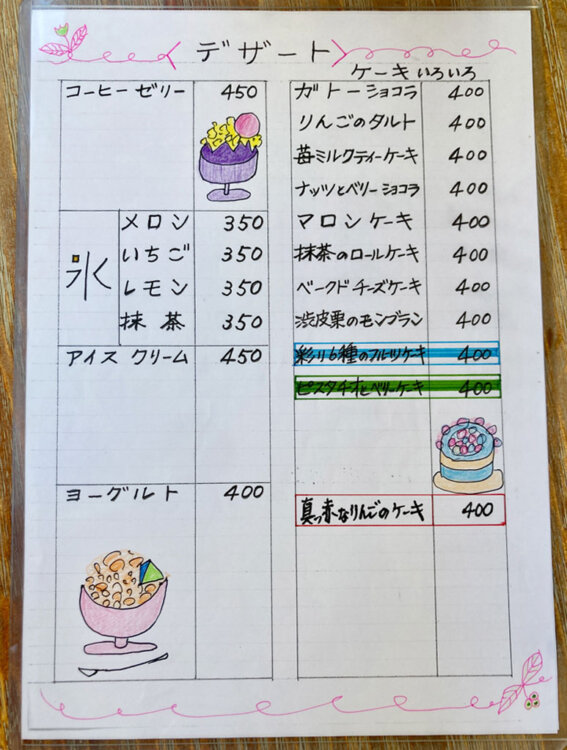 デザート
コーヒーゼリー 450
氷
メロン 350
いちご 350
レモン 350
抹茶 350
アイスクリーム 450
ヨーグルト 400
ケーキいろいろ
ガトーショコラ 400
りんごのタルト 400
苺ミルクティーケーキ 400
ナッツとベリーショコラ 400
マロンケーキ 400
抹茶のロールケーキ 400
ベークドチーズケーキ 400
渋皮栗のモンブラン 400
彩り6種のフルーツケーキ 400
ピスタチオとベリーケーキ 400
真っ赤なりんごのケーキ 400